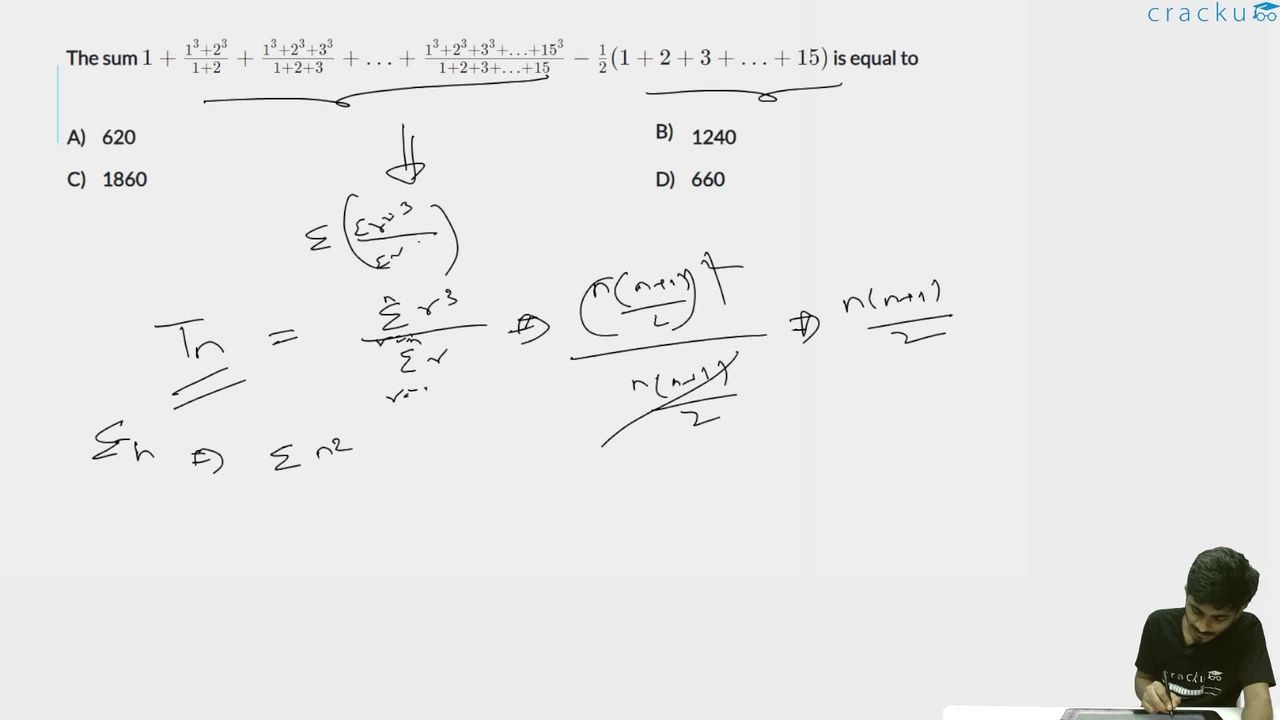 cracku
The sum 1 + \frac{1^3+2^3}{1+2} + \frac{1^3+2^3+3^3}{1+2+3} + ... + \frac{1^3+2^3+3^3+...+15^3}{1+2+3+...+15} − \frac{1}{2}(1 + 2 + 3 + ... + 15) is equal to
A) 620
B) 1240
C) 1860
D) 660
Σ(\frac{Σr^3}{Σr})
T_n = \frac{\sum^{n} r^3}{\sum r} ⇒ \frac{(\frac{n(n+1)}{2})^2}{\frac{n(n+1)}{2}} ⇒ \frac{n(n+1)}{2}
Σn ⇒ Σ n^2
cracku